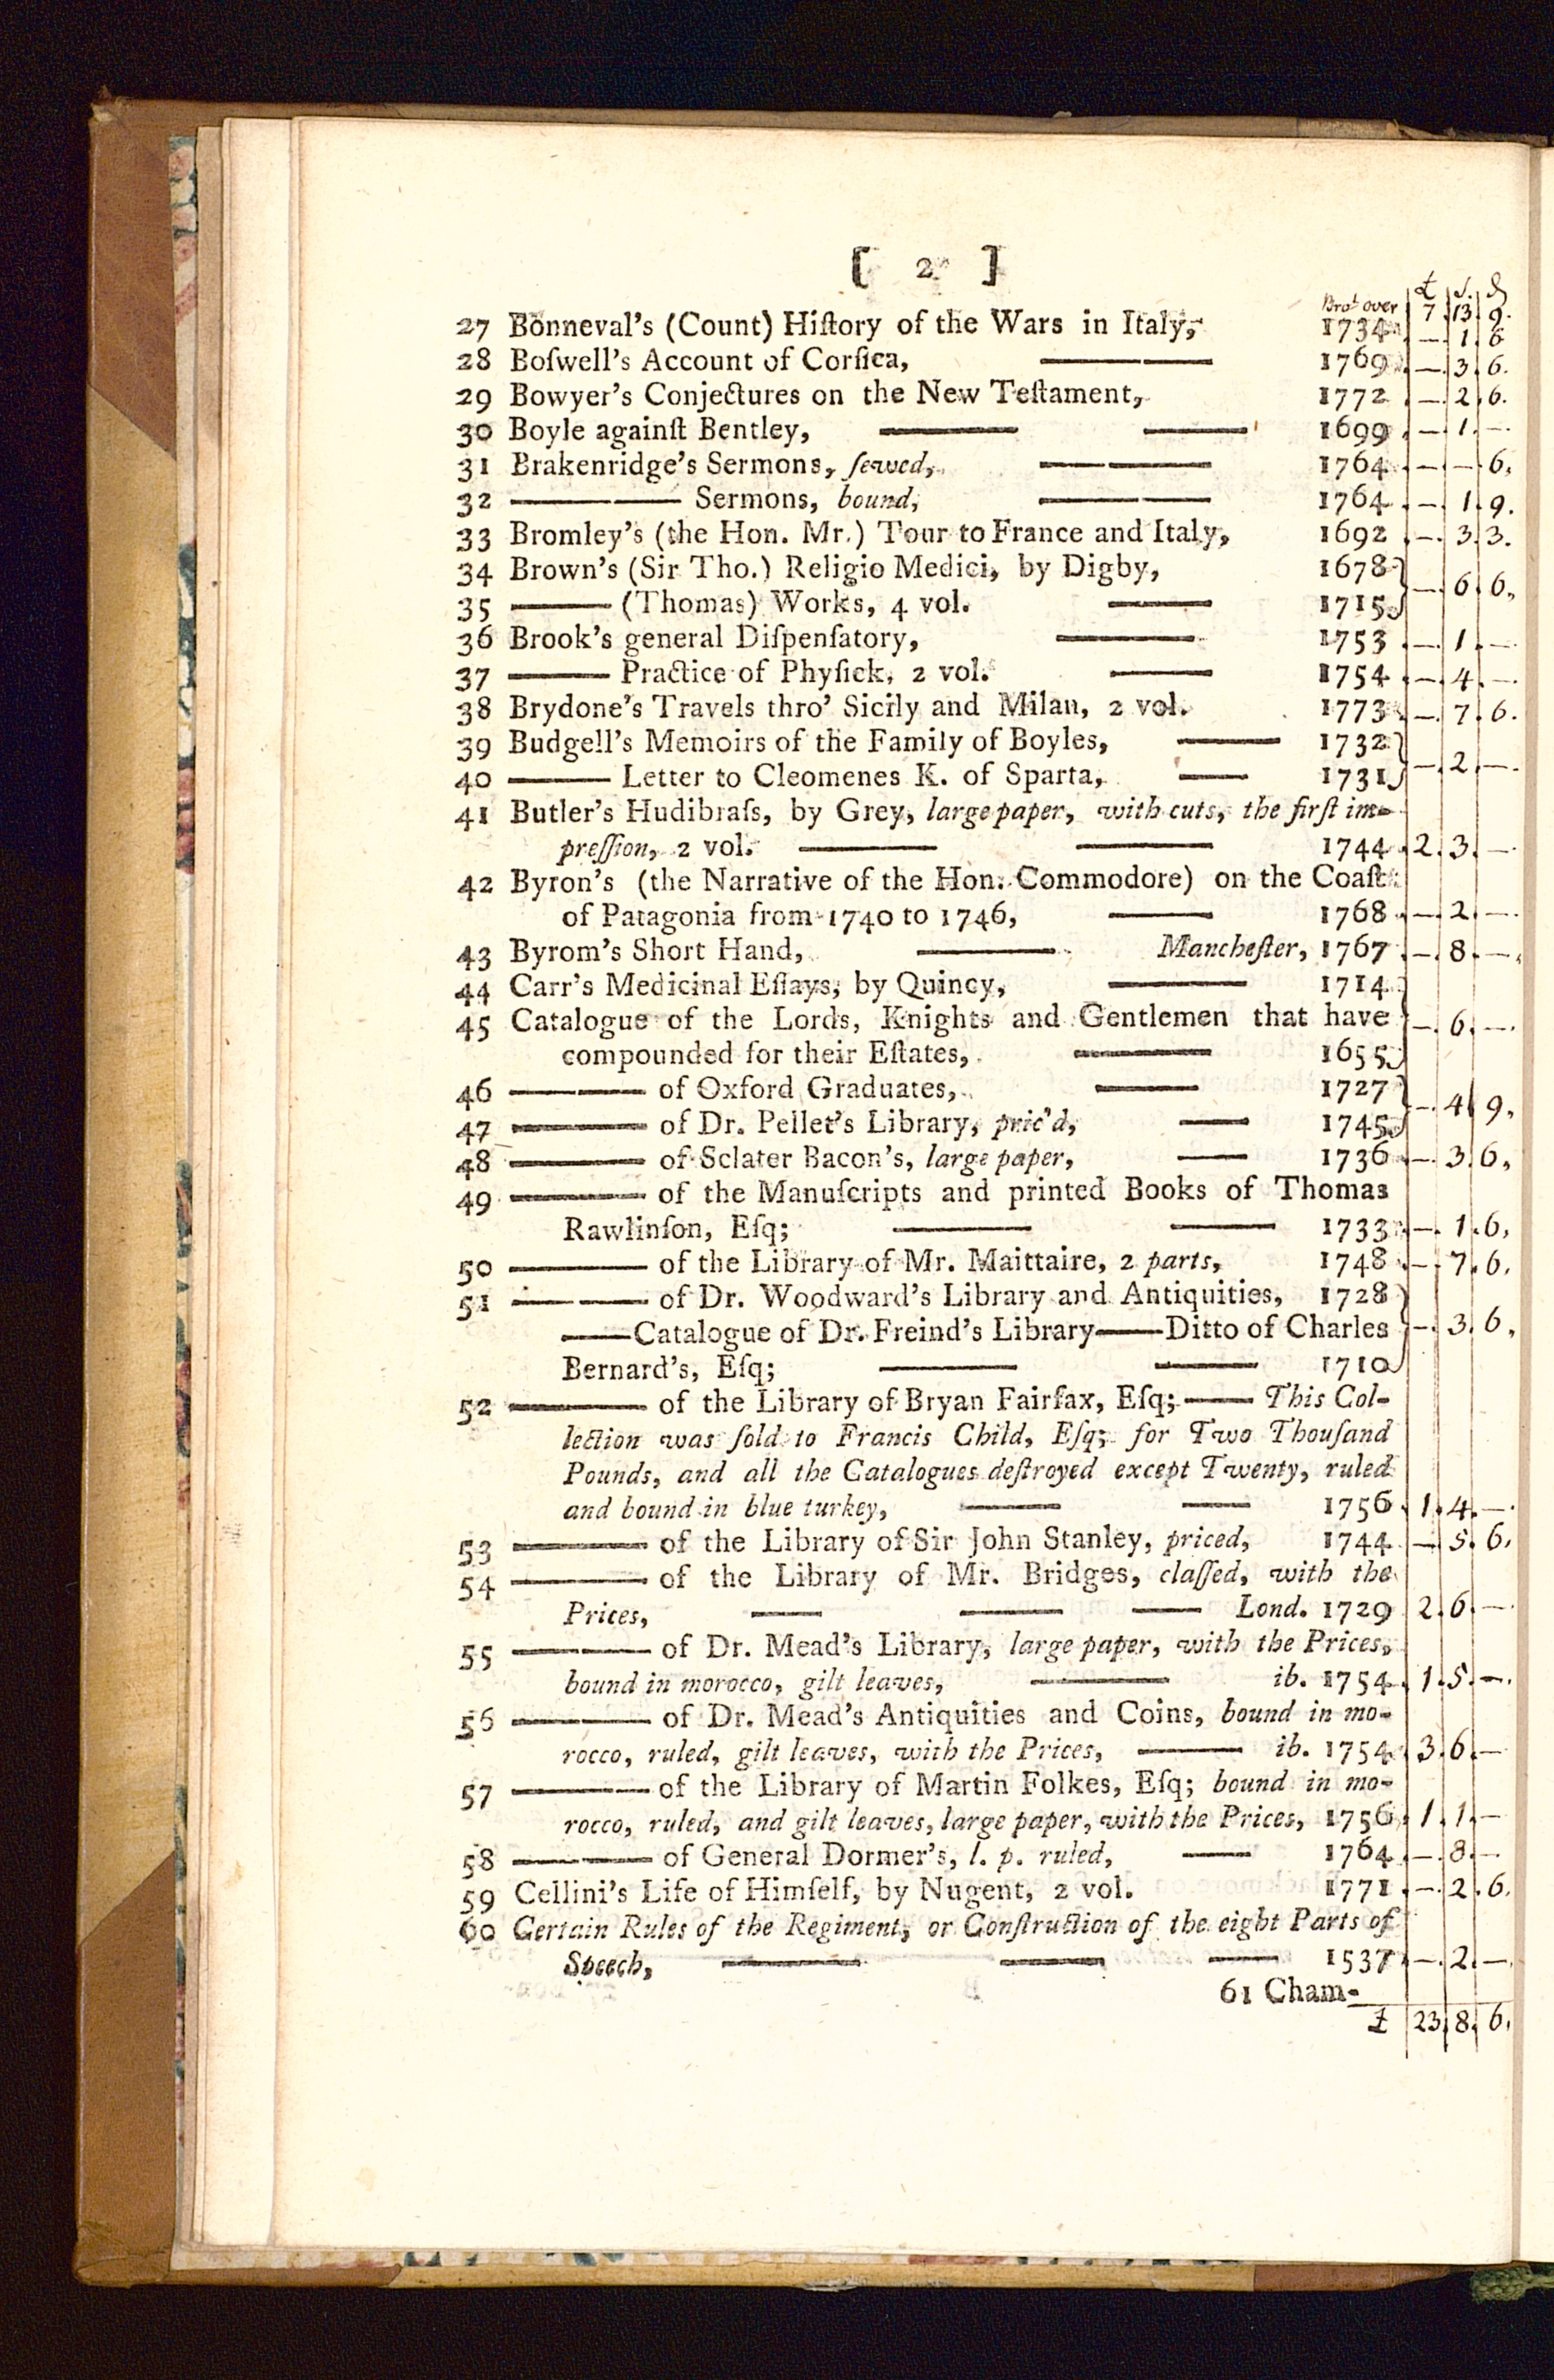 [ 2 ]
£ s. d
Brot over 7. 13. 9.
27 Bonneval's (Count) Hiſtory of the Wars in Italy, 1734 — 1. 6
28 Boſwell's Account of Corſica, —— 1769 — 3. 6.
29 Bowyer's Conjectures on the New Teſtament, 1772 — 2. 6.
30 Boyle againſt Bentley, —— —— 1699 — 1. —
31 Brakenridge's Sermons, ſewed, —— 1764 — — 6.
32 —— Sermons, bound, —— 1764 — 1. 9.
33 Bromley's (the Hon. Mr.) Tour to France and Italy, 1692 — 3. 3.
34 Brown's (Sir Tho.) Religio Medici, by Digby, 1678 } — 6. 6.
35 —— (Thomas) Works, 4 vol. —— 1715
36 Brook's general Diſpenſatory, —— 1753 — 1. —
37 —— Practice of Phyſick, 2 vol. —— 1754 — 4. —
38 Brydone's Travels thro' Sicily and Milan, 2 vol. 1773 — 7. 6.
39 Budgell's Memoirs of the Family of Boyles, —— 1732 } — 2. —
40 —— Letter to Cleomenes K. of Sparta, —— 1731
41 Butler's Hudibraſs, by Grey, large paper, with cuts, the firſt im-
preſſion, 2 vol. —— —— 1744 2. 3. —
42 Byron's (the Narrative of the Hon. Commodore) on the Coaſt
of Patagonia from 1740 to 1746, —— 1768 — 2. —
43 Byrom's Short Hand, —— Mancheſter, 1767 — 8. —
44 Carr's Medicinal Eſſays, by Quincy, —— 1714
45 Catalogue of the Lords, Knights and Gentlemen that have } — 6. —
compounded for their Eſtates, —— 1655
46 —— of Oxford Graduates, —— 1727 } — 4. 9.
47 —— of Dr. Pellet's Library, pric'd, —— 1745
48 —— of Sclater Bacon's, large paper, —— 1736 — 3. 6.
49 —— of the Manuſcripts and printed Books of Thomas
Rawlinſon, Eſq; —— —— 1733 — 1. 6.
50 —— of the Library of Mr. Maittaire, 2 parts, 1748 — 7. 6.
51 —— of Dr. Woodward's Library and Antiquities, 1728
——Catalogue of Dr. Freind's Library——Ditto of Charles } — 3. 6.
Bernard's, Eſq; —— —— 1710
52 —— of the Library of Bryan Fairfax, Eſq; —— This Col-
lection was ſold to Francis Child, Eſq; for Two Thouſand
Pounds, and all the Catalogues deſtroyed except Twenty, ruled
and bound in blue turkey, —— —— 1756 1. 4. —
53 —— of the Library of Sir John Stanley, priced, 1744 — 5. 6.
54 —— of the Library of Mr. Bridges, claſſed, with the
Prices, —— —— —— Lond. 1729 2. 6. —
55 —— of Dr. Mead's Library, large paper, with the Prices,
bound in morocco, gilt leaves, —— ib. 1754 1. 5. —
56 —— of Dr. Mead's Antiquities and Coins, bound in mo-
rocco, ruled, gilt leaves, with the Prices, —— ib. 1754 3. 6. —
57 —— of the Library of Martin Folkes, Eſq; bound in mo-
rocco, ruled, and gilt leaves, large paper, with the Prices, 1756 1. 1. —
58 —— of General Dormer's, l. p. ruled, —— 1764 — 8. —
59 Cellini's Life of Himſelf, by Nugent, 2 vol. 1771 — 2. 6.
60 Certain Rules of the Regiment, or Conſtruction of the eight Parts of
Speech, —— —— —— 1537 — 2. —
61 Cham-
£ 23. 8. 6.